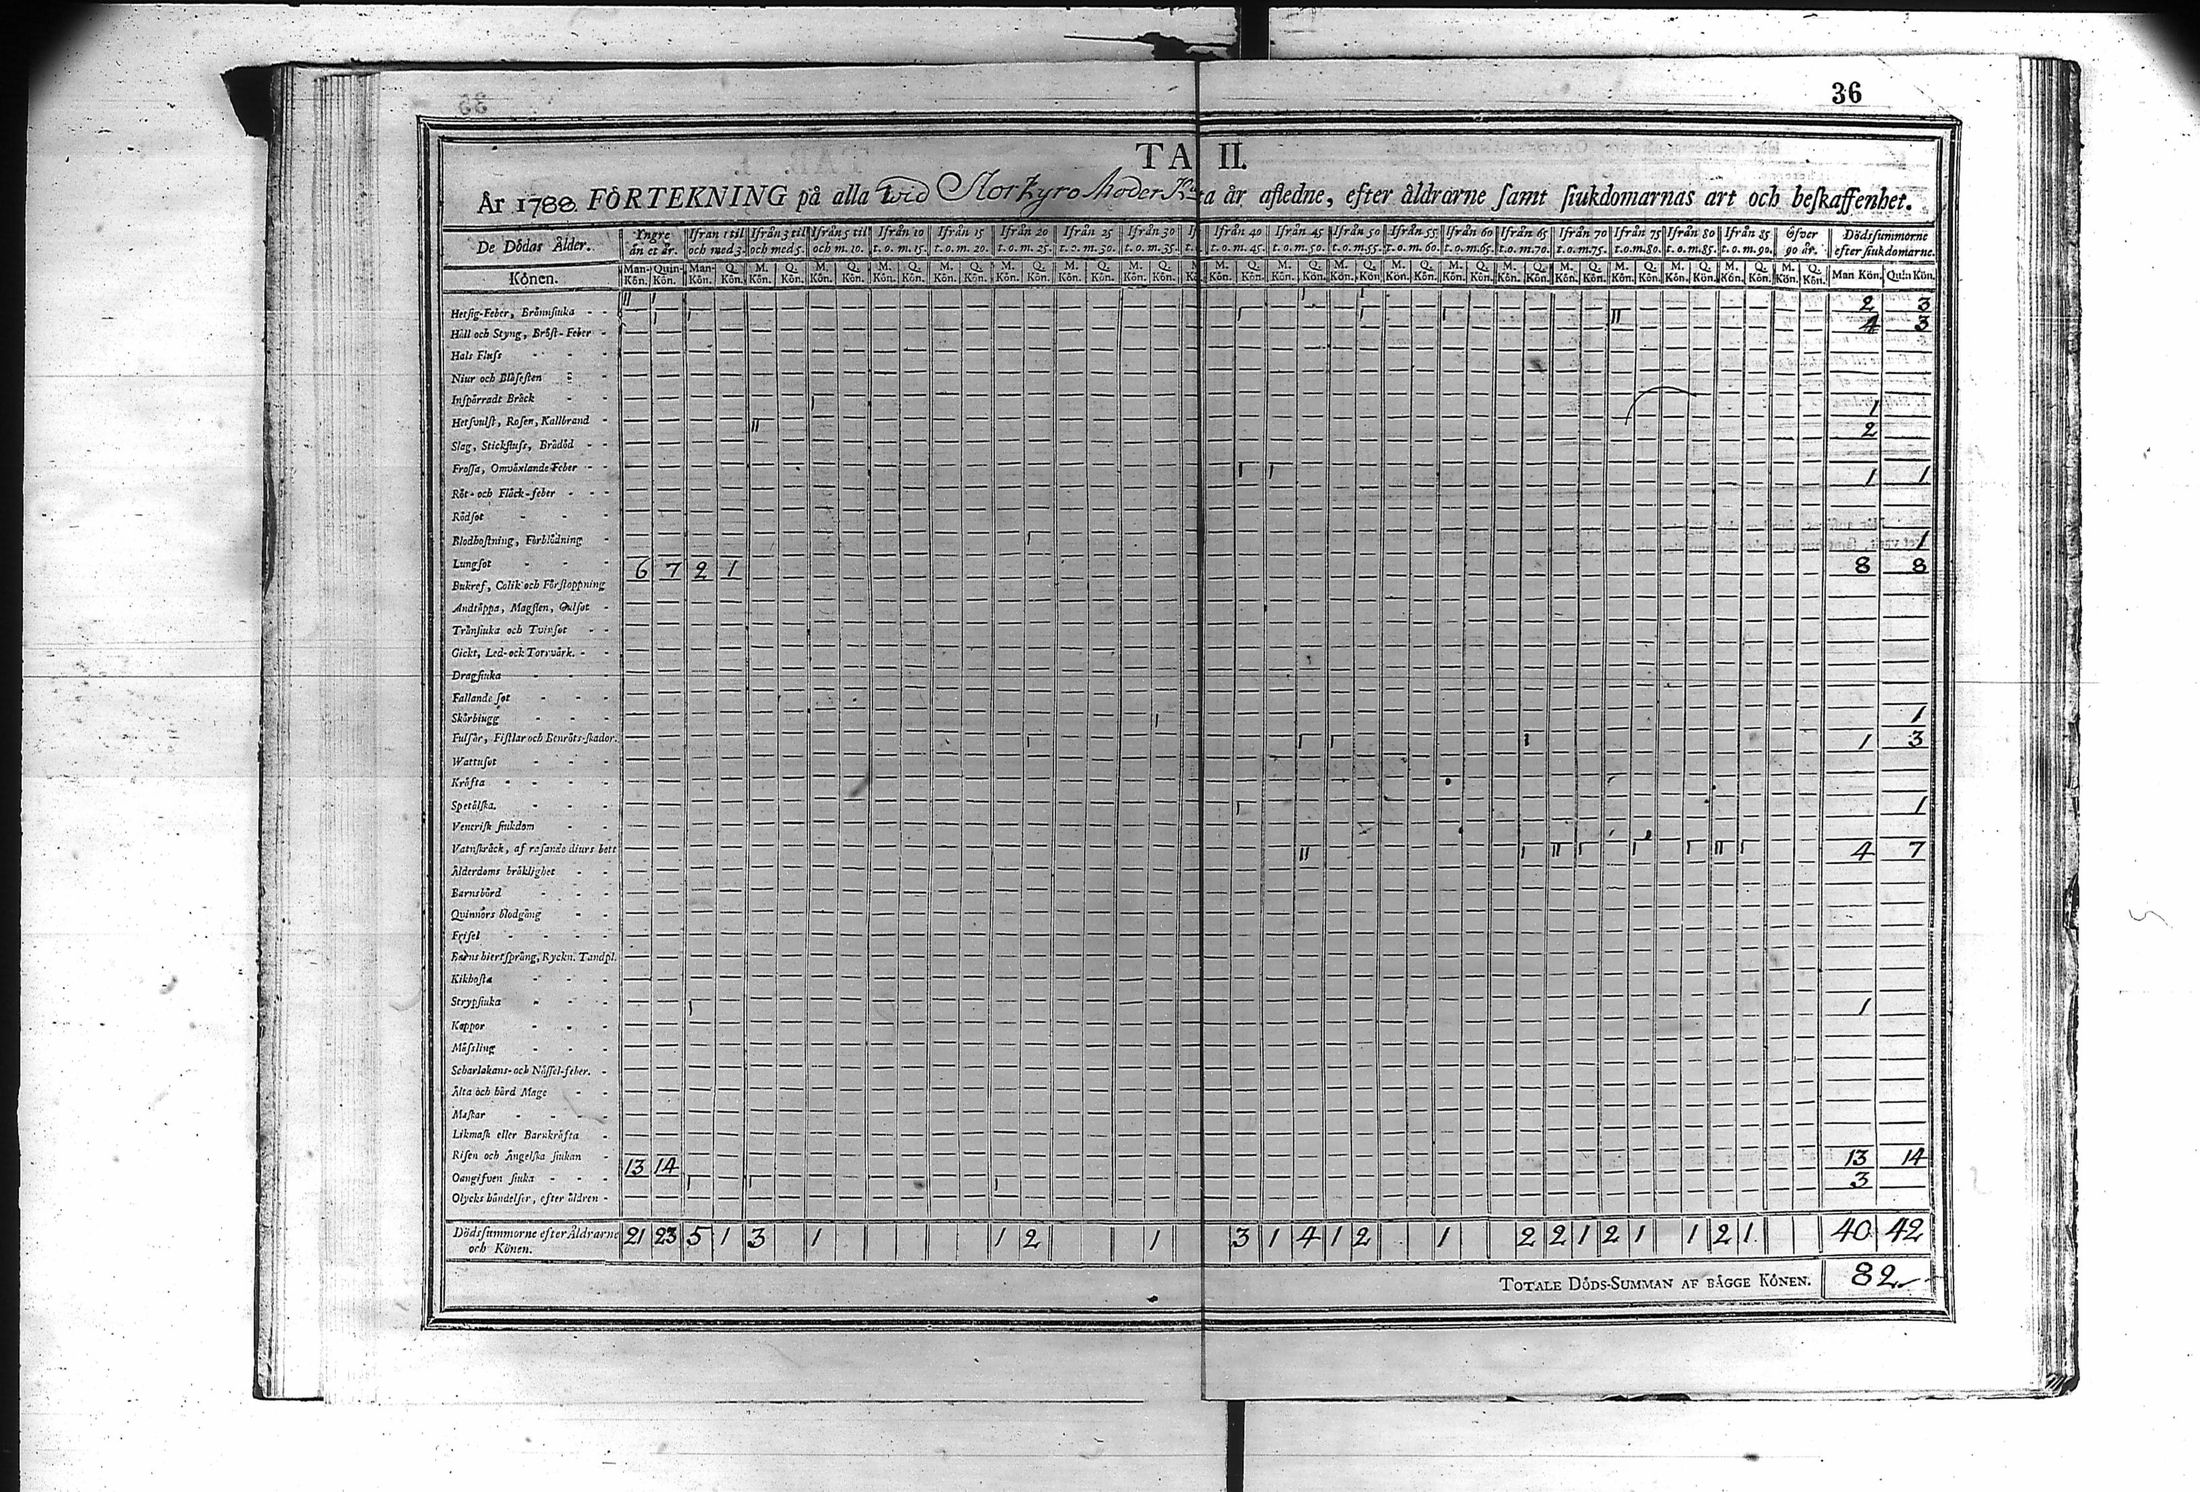 36
TA II.
År 1788. FÖRTEKNING på alla wid Storkyro Moder Kyrka år afledne, efter åldrarne samt siukdomarnas art och beskaffenhet.
De Dödas Ålder. Yngre än et år. Ifrån 1 til och med 3. Ifrån 3 til och med 5. Ifrån 5 til och m. 10. Ifrån 10 t. o. m. 15. Ifrån 15 t. o. m. 20. Ifrån 20 t. o. m. 25. Ifrån 25 t. o. m. 30. Ifrån 30 t. o. m. 35. Ifrån 40 t. o. m. 45. Ifrån 45 t. o. m. 50. Ifrån 50 t. o. m. 55. Ifrån 55 t. o. m. 60. Ifrån 60 t. o. m. 65. Ifrån 65 t. o. m. 70. Ifrån 70 t. o. m. 75. Ifrån 75 t. o. m. 80. Ifrån 80 t. o. m. 85. Ifrån 85 t. o. m. 90. Öfver 90 år. Dödssummorne efter siukdomarne.
Könen. Man-Kön. Quin-Kön. Man-Kön. Q. Kön. M. Kön. Q. Kön. M. Kön. Q. Kön. M. Kön. Q. Kön. M. Kön. Q. Kön. M. Kön. Q. Kön. M. Kön. Q. Kön. M. Kön. Q. Kön. M. Kön. Q. Kön. M. Kön. Q. Kön. M. Kön. Q. Kön. M. Kön. Q. Kön. M. Kön. Q. Kön. M. Kön. Q. Kön. M. Kön. Q. Kön. M. Kön. Q. Kön. M. Kön. Q. Kön. M. Kön. Q. Kön. M. Kön. Q. Kön. Man Kön. Quin Kön.
Hetsig-Feber, Brännsiuka 2 3
Håll och Styng, Bröst-Feber 4 3
Hals Fluss
Niur och Blåsesten
Inspärradt Bråck
Hetsvulst, Rosen, Kallbrand 1
Slag, Stickfluss, Brådöd 2
Frossa, Omväxlande Feber
Röt- och Fläck-feber 1 1
Rödsot
Blodhostning, Förblödning 1
Lungsot 6 7 2 1 8 8
Bukref, Colik och Förstoppning
Andtäppa, Magsten, Gulsot
Trånsiuka och Tvinsot
Gickt, Led- och Torrvärk.
Dragsiuka
Fallande sot
Skörbiugg 1
Fulsår, Fistlar och Benröts-skador. 1 3
Wattusot
Kräfta
Spetälska. 1
Venerisk siukdom
Vatnskräck, af rasande diurs bett 4 7
Ålderdoms bräklighet
Barnsbörd
Quinnors blodgång
Frisel
Barns hiertsprång, Ryckn. Tandpl.
Kikhosta
Strypsiuka 1
Koppor
Mässling
Scharlakans- och Nässel-feber.
Älta och hård Mage
Maskar
Likmask eller Barnkräfta
Risen och Ängelska siukan 13 14 13 14
Oangifven siuka 3
Olycks händelser, efter åldren
Dödssummorne efter Åldrarne och Könen. 21 23 5 1 3 1 1 2 1 3 1 4 1 2 1 2 2 1 2 1 1 2 1 40 42
TOTALE DÖDS-SUMMAN AF BÄGGE KÖNEN. 82